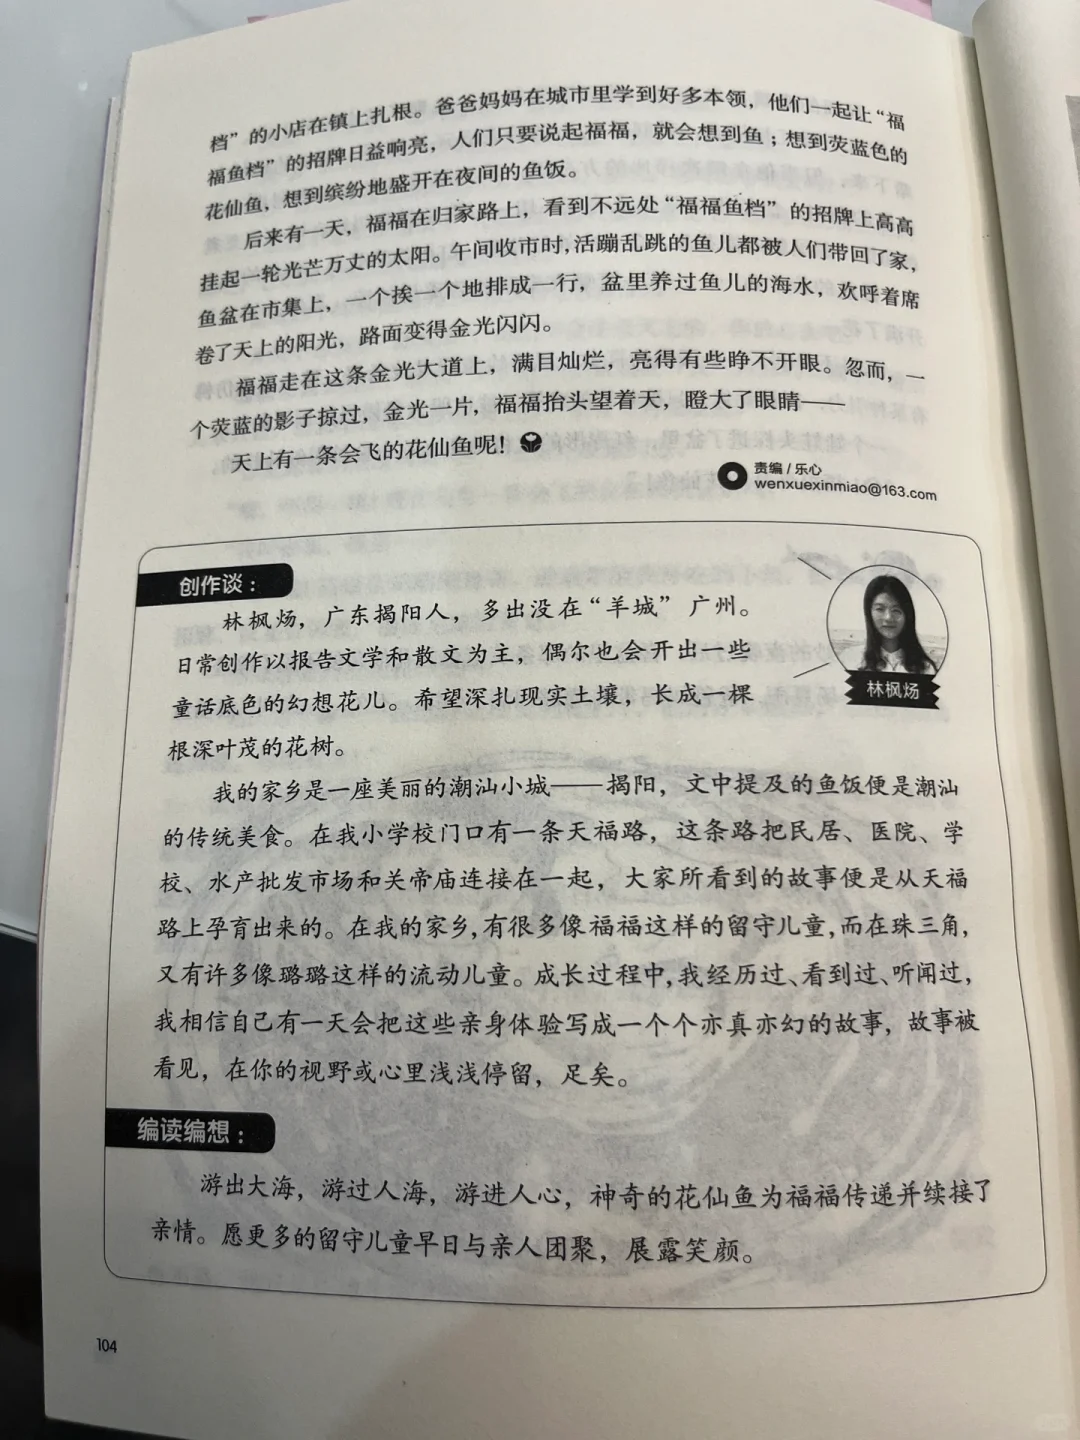 档”的小店在镇上扎根。爸爸妈妈在城市里学到好多本领，他们一起让“福
福鱼档”的招牌日益响亮，人们只要说起福福，就会想到鱼；想到荧蓝色的
花仙鱼，想到缤纷地盛开在夜间的鱼饭。
后来有一天，福福在归家路上，看到不远处“福福鱼档”的招牌上高高
挂起一轮光芒万丈的太阳。午间收市时，活蹦乱跳的鱼儿都被人们带回了家，
鱼盆在市集上，一个挨一个地排成一行，盆里养过鱼儿的海水，欢呼着席
卷了天上的阳光，路面变得金光闪闪。
福福走在这条金光大道上，满目灿烂，亮得有些睁不开眼。忽而，一
个荧蓝的影子掠过，金光一片，福福抬头望着天，瞪大了眼睛——
天上有一条会飞的花仙鱼呢！
责编 / 乐心
wenxuexinmiao@163.com
创作谈：
林枫炀，广东揭阳人，多出没在“羊城”广州。
日常创作以报告文学和散文为主，偶尔也会开出一些
童话底色的幻想花儿。希望深扎现实土壤，长成一棵
根深叶茂的花树。
林枫炀
我的家乡是一座美丽的潮汕小城——揭阳，文中提及的鱼饭便是潮汕
的传统美食。在我小学校门口有一条天福路，这条路把民居、医院、学
校、水产批发市场和关帝庙连接在一起，大家所看到的故事便是从天福
路上孕育出来的。在我的家乡，有很多像福福这样的留守儿童，而在珠三角，
又有许多像璐璐这样的流动儿童。成长过程中，我经历过、看到过、听闻过，
我相信自己有一天会把这些亲身体验写成一个个亦真亦幻的故事，故事被
看见，在你的视野或心里浅浅停留，足矣。
编读编想：
游出大海，游过人海，游进人心，神奇的花仙鱼为福福传递并续接了
亲情。愿更多的留守儿童早日与亲人团聚，展露笑颜。
104